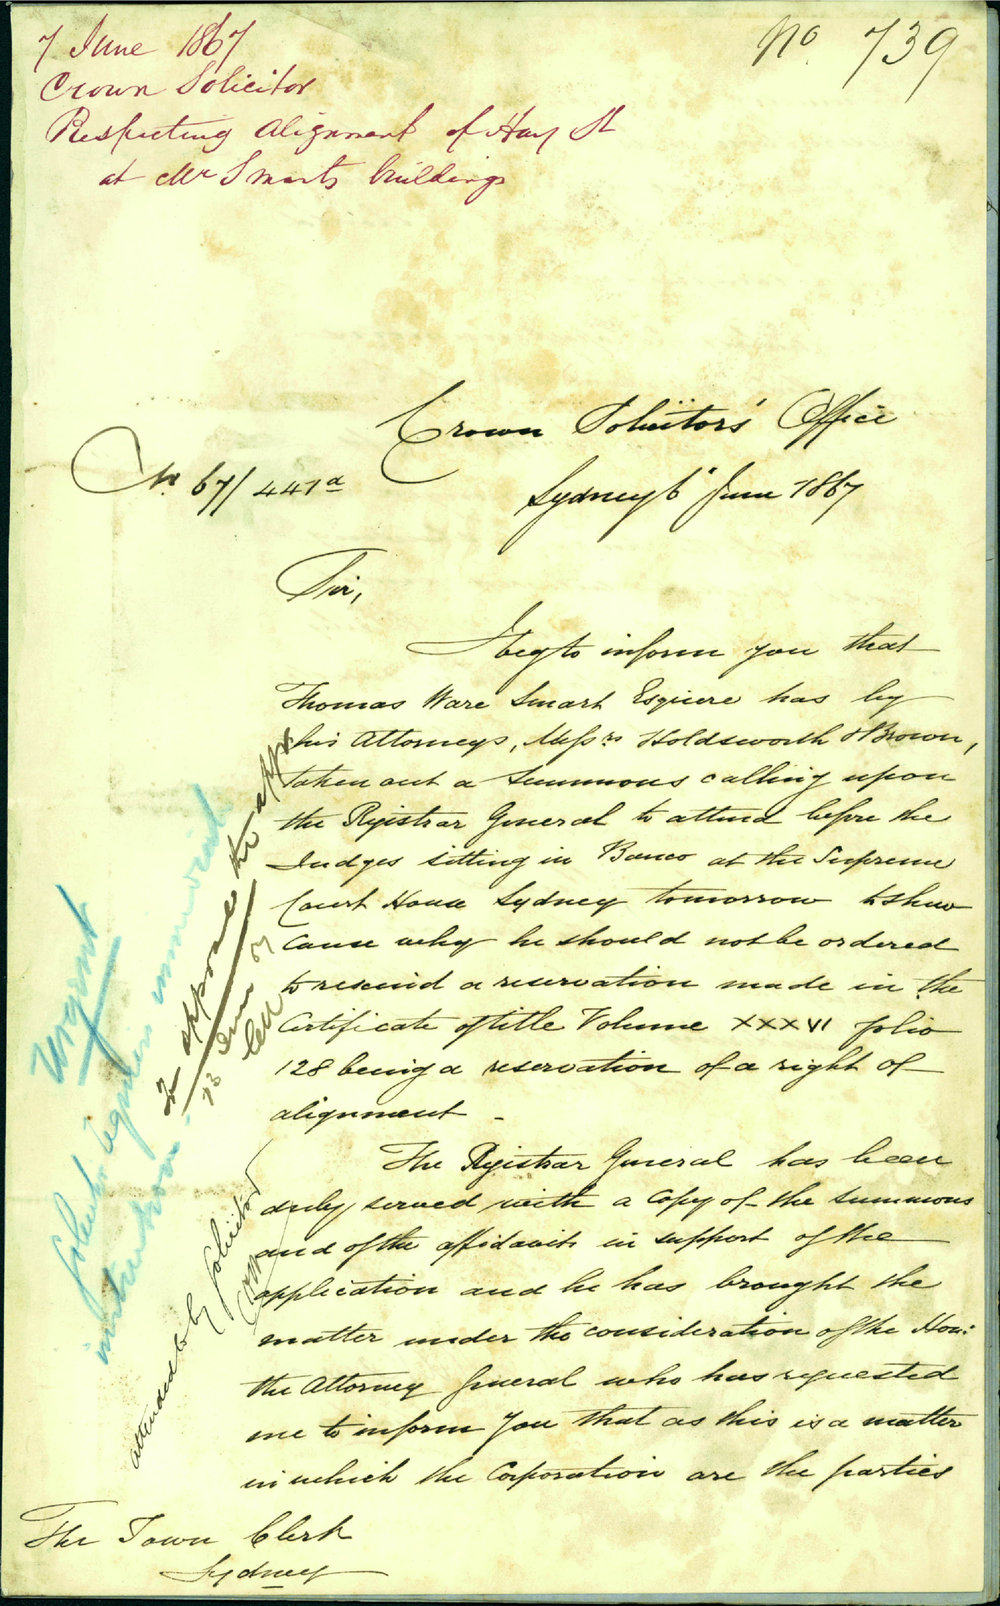 7 June 1867
Crown Solicitor
Respecting Alignment of Hay St
at Mr Smarts buildings
No. 739
Crown Solicitors' Office
Sydney 6" June 1867
No. 67/441a
Sir,
I beg to inform you that
Thomas Ware Smart Esquire has by
his Attorneys, Messrs Holdsworth & Brown,
taken out a Summons calling upon
the Registrar General to attend before the
Judges sitting in Banco at the Supreme
Court House Sydney tomorrow to shew
cause why he should not be ordered
to rescind a reservation made in the
Certificate of title Volume XXXVI folio
128 being a reservation of a right of
alignment -
The Registrar General has been
duly served with a Copy of the summons
and of the affidavits in support of the
application and he has brought the
matter under the consideration of the Hon:
the Attorney General who has requested
me to inform you that as this is a matter
in which the Corporation are the parties
The Town Clerk
Sydney
Urgent
Solicitor requires immediate
instructions.
To oppose the
attended to by Solicitor